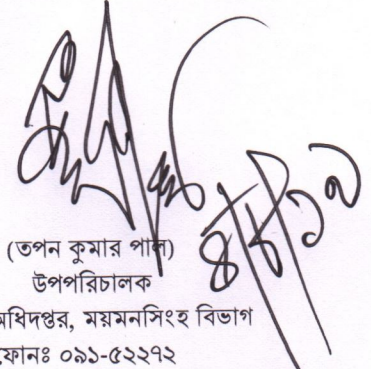 (তপন কুমার পাল)
উপপরিচালক
অধিদপ্তর, ময়মনসিংহ বিভাগ
ফোনঃ ০৯১-৫২২৭২